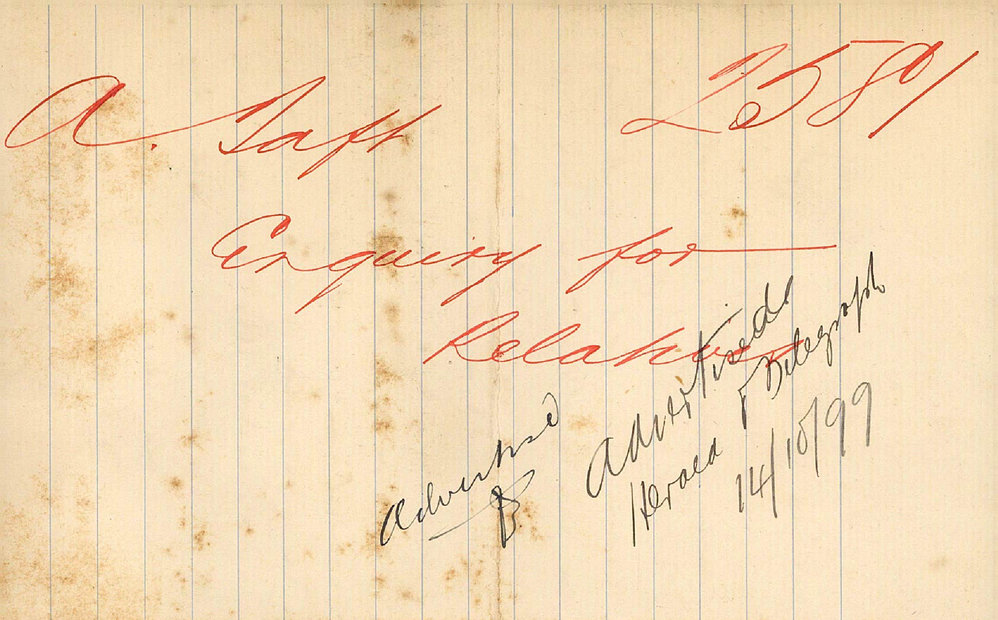 A. Taft 2589
Enquiry for
Relatives
Advertised
Advertised
Herald & Telegraph
14/10/99